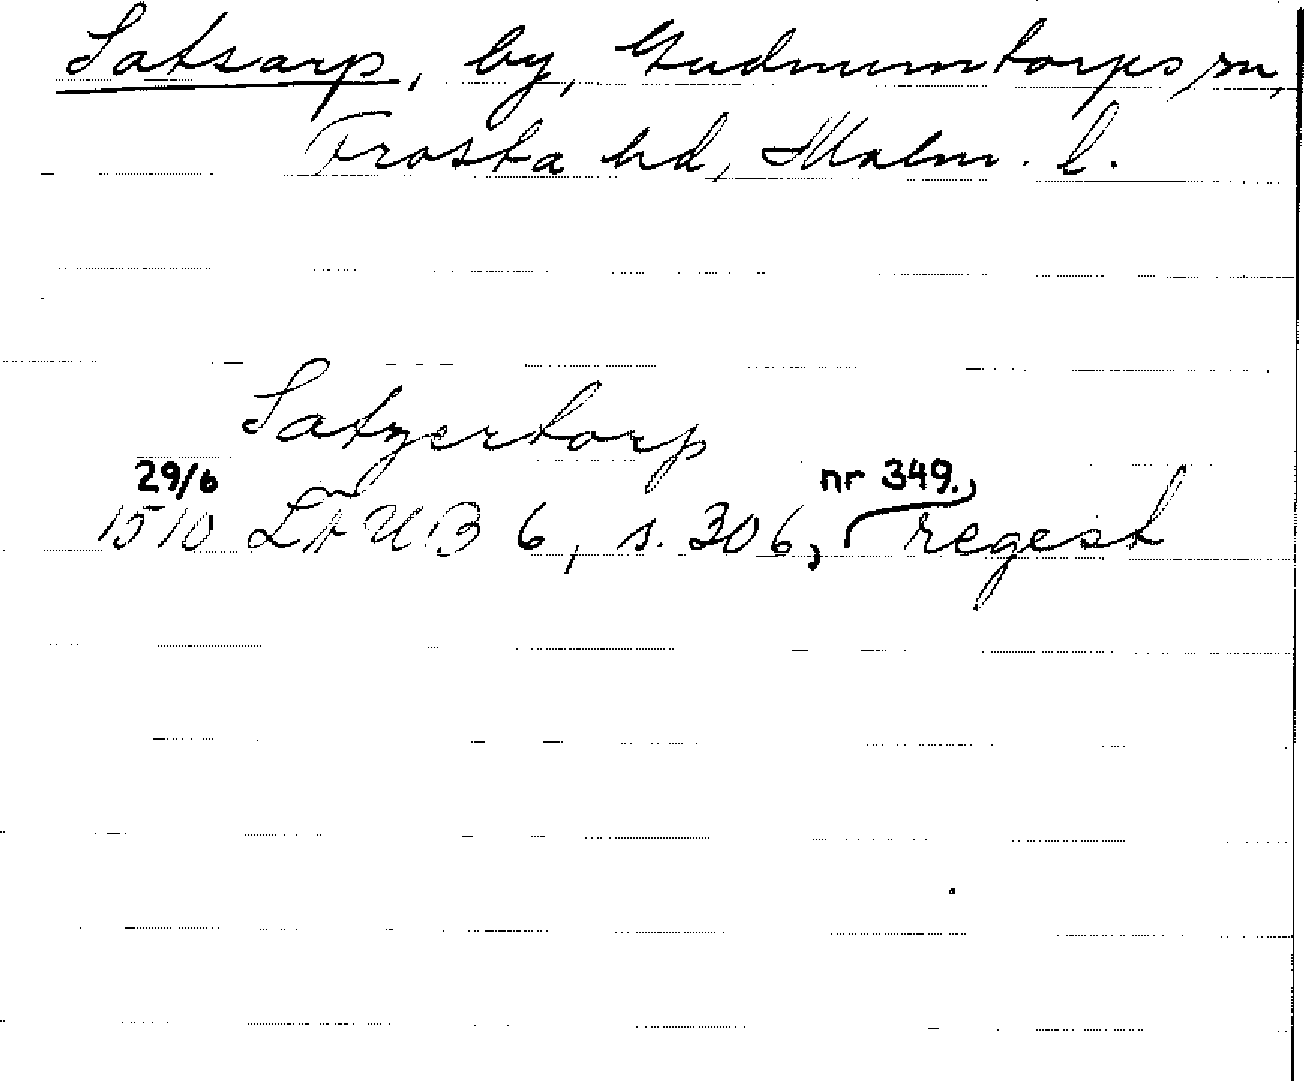 Satsarp, by, Gudmuntorps sn,
Frosta hd, Malm. l.
Satzertorp
29/6 nr 349.,
1510 LÄUB 6, s. 306, regest